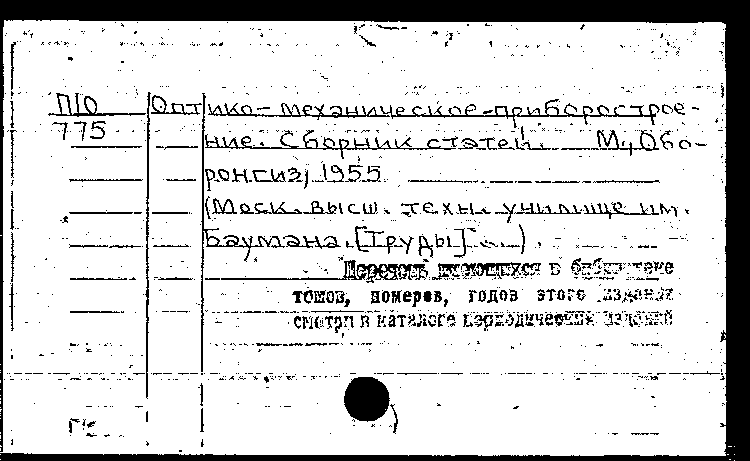 П10 Оптико-механическое-приборострое-
775 ние. Сборник статей. М., Обо-
ронгиз, 1955
(Моск. высш. техн. училище им.
Баумана. [Труды] ...).
Перечень имеющихся в библиотеке
томов, номеров, годов этого издания
смотри в каталоге периодических изданий